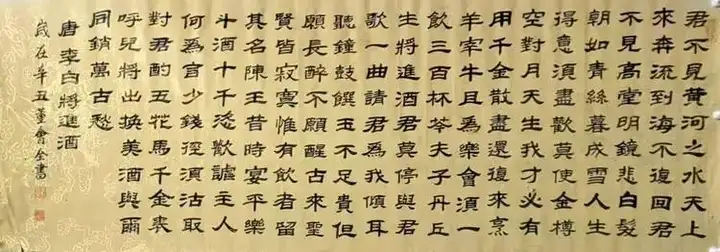 君不見黃河之水天上
來奔流到海不復回君
不見高堂明鏡悲白髮
朝如青絲暮成雪人生
得意須盡歡莫使金樽
空對月天生我才必有
用千金散盡還復來烹
羊宰牛且爲樂會須一
飲三百杯岑夫子丹丘
生將進酒君莫停與君
歌一曲請君爲我傾耳
聽鐘鼓饌玉不足貴但
願長醉不願醒古來聖
賢皆寂寞惟有飲者留
其名陳王昔時宴平樂
斗酒十千恣歡謔主人
何爲言少錢徑須沽取
對君酌五花馬千金裘
呼兒將出換美酒與爾
同銷萬古愁
唐李白將進酒
歲在辛丑董會全書